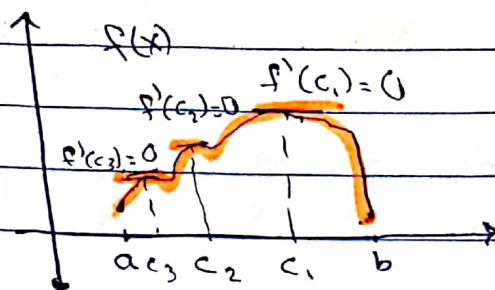 f(x)
f'(c₁)=0
f'(c₂)=0
f'(c₃)=0
a c₃ c₂ c₁ b